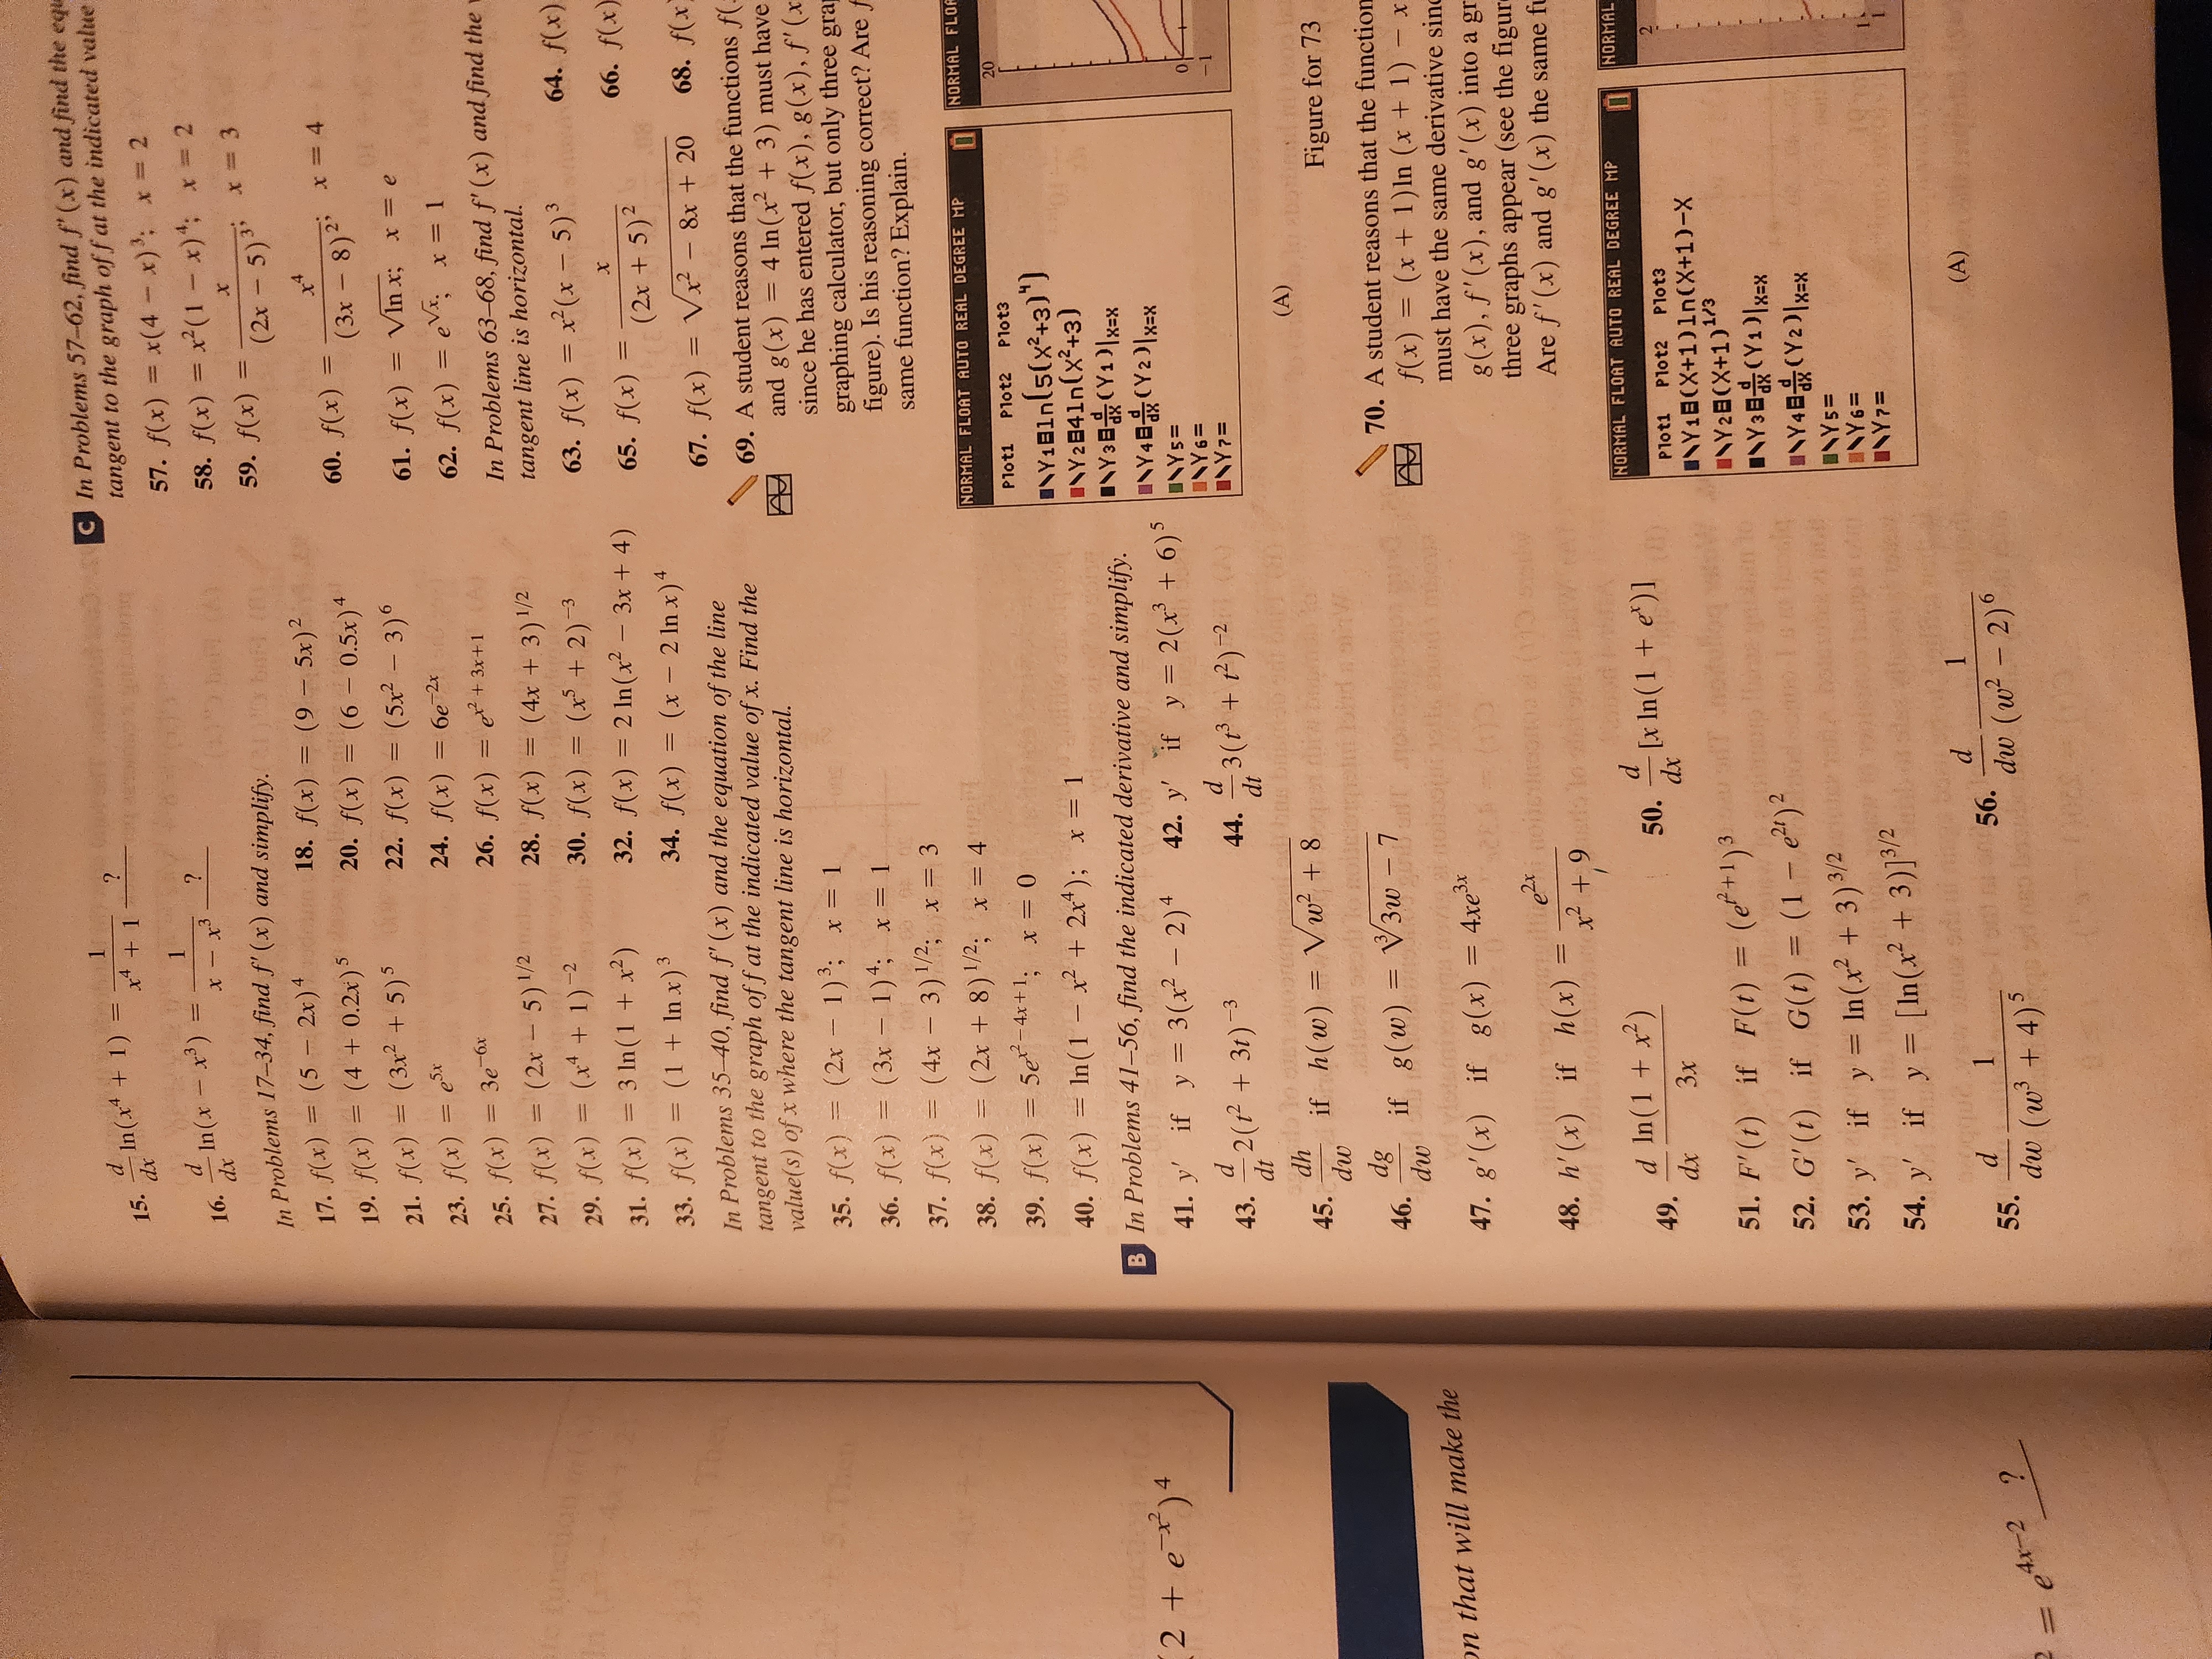 (2 + e^{-x^2})^4
on that will make the
= e^{4x-2} ?
15. d/dx ln(x^4 + 1) = 1/(x^4 + 1) ?
16. d/dx ln(x − x^3) = 1/(x − x^3) ?
In Problems 17–34, find f′(x) and simplify.
17. f(x) = (5 − 2x)^4 18. f(x) = (9 − 5x)^2
19. f(x) = (4 + 0.2x)^5 20. f(x) = (6 − 0.5x)^4
21. f(x) = (3x^2 + 5)^5 22. f(x) = (5x^2 − 3)^6
23. f(x) = e^{5x} 24. f(x) = 6e^{−2x}
25. f(x) = 3e^{−6x} 26. f(x) = e^{x^2+3x+1}
27. f(x) = (2x − 5)^{1/2} 28. f(x) = (4x + 3)^{1/2}
29. f(x) = (x^4 + 1)^{−2} 30. f(x) = (x^5 + 2)^{−3}
31. f(x) = 3 ln(1 + x^2) 32. f(x) = 2 ln(x^2 − 3x + 4)
33. f(x) = (1 + ln x)^3 34. f(x) = (x − 2 ln x)^4
In Problems 35–40, find f′(x) and the equation of the line
tangent to the graph of f at the indicated value of x. Find the
value(s) of x where the tangent line is horizontal.
35. f(x) = (2x − 1)^3; x = 1
36. f(x) = (3x − 1)^4; x = 1
37. f(x) = (4x − 3)^{1/2}; x = 3
38. f(x) = (2x + 8)^{1/2}; x = 4
39. f(x) = 5e^{x^2−4x+1}; x = 0
40. f(x) = ln(1 − x^2 + 2x^4); x = 1
B In Problems 41–56, find the indicated derivative and simplify.
41. y′ if y = 3(x^2 − 2)^4 42. y′ if y = 2(x^3 + 6)^5
43. d/dt 2(t^2 + 3t)^{−3} 44. d/dt 3(t^3 + t^2)^{−2}
45. dh/dw if h(w) = √(w^2 + 8)
46. dg/dw if g(w) = ∛(3w − 7)
47. g′(x) if g(x) = 4xe^{3x}
48. h′(x) if h(x) = e^{2x}/(x^2 + 9)
49. d/dx ln(1 + x^2)/3x 50. d/dx [x ln(1 + e^x)]
51. F′(t) if F(t) = (e^{t^2+1})^3
52. G′(t) if G(t) = (1 − e^{2t})^2
53. y′ if y = ln(x^2 + 3)^{3/2}
54. y′ if y = [ln(x^2 + 3)]^{3/2}
55. d/dw 1/(w^3 + 4)^5 56. d/dw 1/(w^2 − 2)^6
C In Problems 57–62, find f′(x) and find the equ
tangent to the graph of f at the indicated value
57. f(x) = x(4 − x)^3; x = 2
58. f(x) = x^2(1 − x)^4; x = 2
59. f(x) = x/(2x − 5)^3; x = 3
60. f(x) = x^4/(3x − 8)^2; x = 4
61. f(x) = √(ln x); x = e
62. f(x) = e^{√x}; x = 1
In Problems 63–68, find f′(x) and find the
tangent line is horizontal.
63. f(x) = x^2(x − 5)^3 64. f(x)
65. f(x) = x/(2x + 5)^2 66. f(x)
67. f(x) = √(x^2 − 8x + 20) 68. f(x)
69. A student reasons that the functions f(
and g(x) = 4 ln(x^2 + 3) must have
since he has entered f(x), g(x), f′(x
graphing calculator, but only three gra
figure). Is his reasoning correct? Are f
same function? Explain.
NORMAL FLOAT AUTO REAL DEGREE MP
Plot1 Plot2 Plot3
\Y1=ln(5(X^2+3)^4)
\Y2=4ln(X^2+3)
\Y3=d/dX(Y1)|X=X
\Y4=d/dX(Y2)|X=X
\Y5=
\Y6=
\Y7=
NORMAL FLOA
20
0
−1
(A)
Figure for 73
70. A student reasons that the function
f(x) = (x + 1)ln (x + 1) − x
must have the same derivative sinc
g(x), f′(x), and g′(x) into a gr
three graphs appear (see the figur
Are f′(x) and g′(x) the same fu
NORMAL FLOAT AUTO REAL DEGREE MP
Plot1 Plot2 Plot3
\Y1=(X+1)ln(X+1)-X
\Y2=(X+1)^{1/3}
\Y3=d/dX(Y1)|X=X
\Y4=d/dX(Y2)|X=X
\Y5=
\Y6=
\Y7=
NORMAL
2
(A)